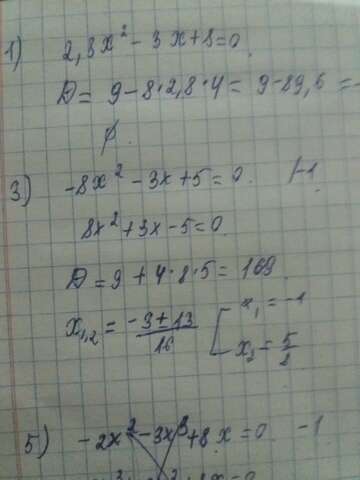 1) 2,8x² - 3x + 8 = 0.
D = 9 - 8·2,8·4 = 9 - 89,6 = -
∅.
3) -8x² - 3x + 5 = 0. |-1
8x² + 3x - 5 = 0.
D = 9 + 4·8·5 = 169
x₁,₂ = (-3 ± 13)/16 [ x₁ = -1
x₂ = 5/8
5) -2x² - 3x³ + 8x = 0 -1